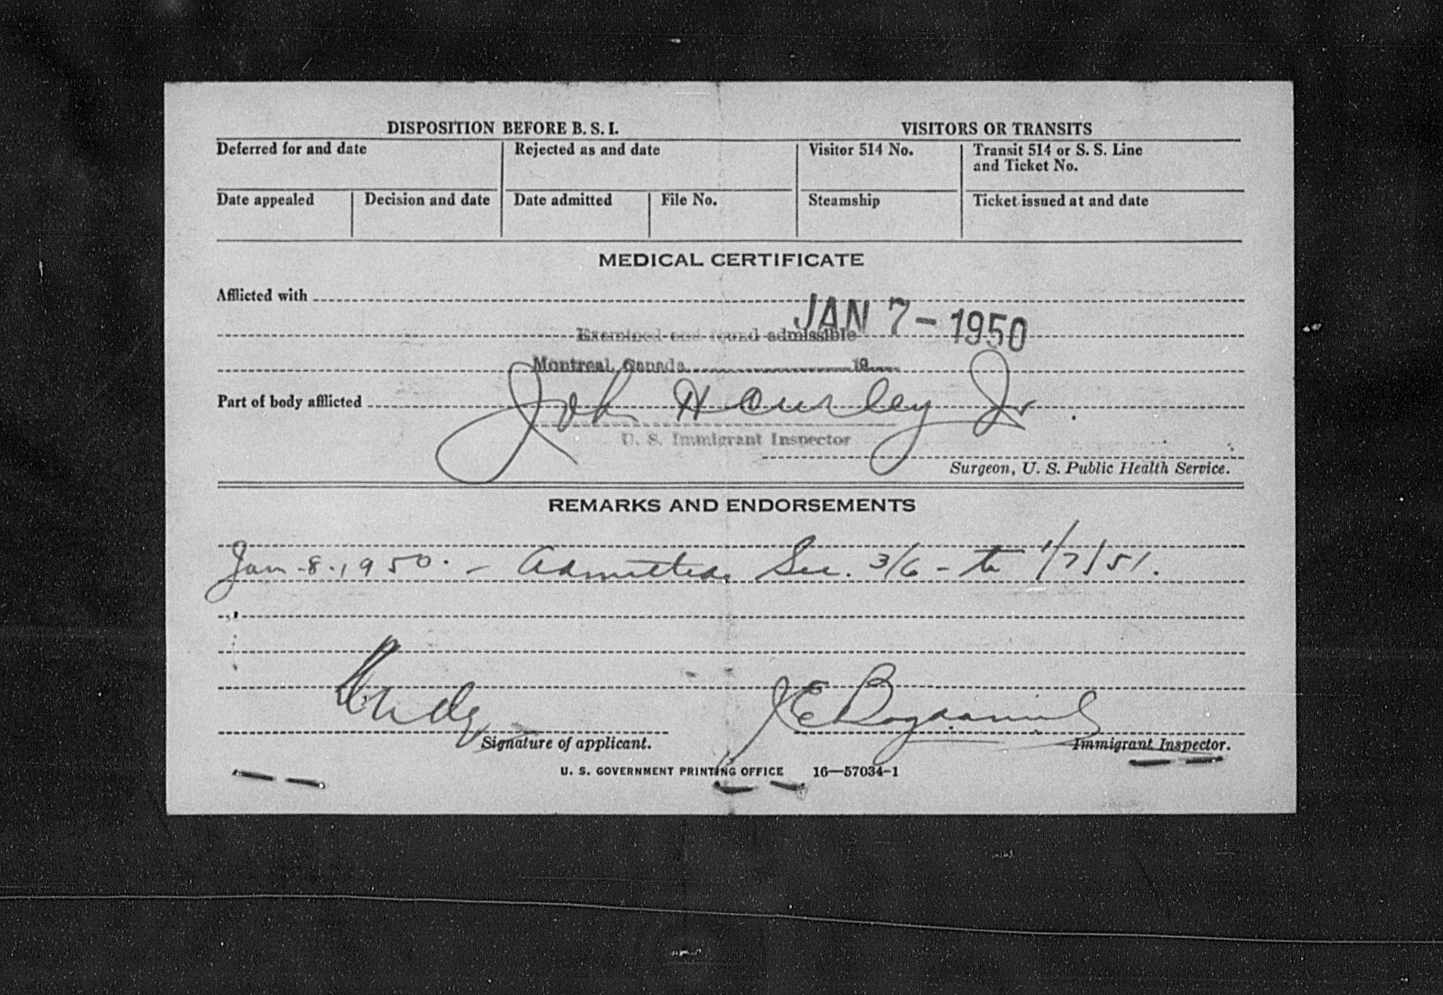 DISPOSITION BEFORE B. S. I. VISITORS OR TRANSITS
Deferred for and date Rejected as and date Visitor 514 No. Transit 514 or S. S. Line and Ticket No.
Date appealed Decision and date Date admitted File No. Steamship Ticket issued at and date
MEDICAL CERTIFICATE
Afflicted with
JAN 7 - 1950
Examined and found admissible
Montreal, Canada 19
Part of body afflicted
John Hourley Jr.
U. S. Immigrant Inspector
Surgeon, U. S. Public Health Service.
REMARKS AND ENDORSEMENTS
Jan-8-1950. - Admitted. Sec. 3/6 - to 1/7/51.
Signature of applicant. Immigrant Inspector.
U. S. GOVERNMENT PRINTING OFFICE 16—57034-1